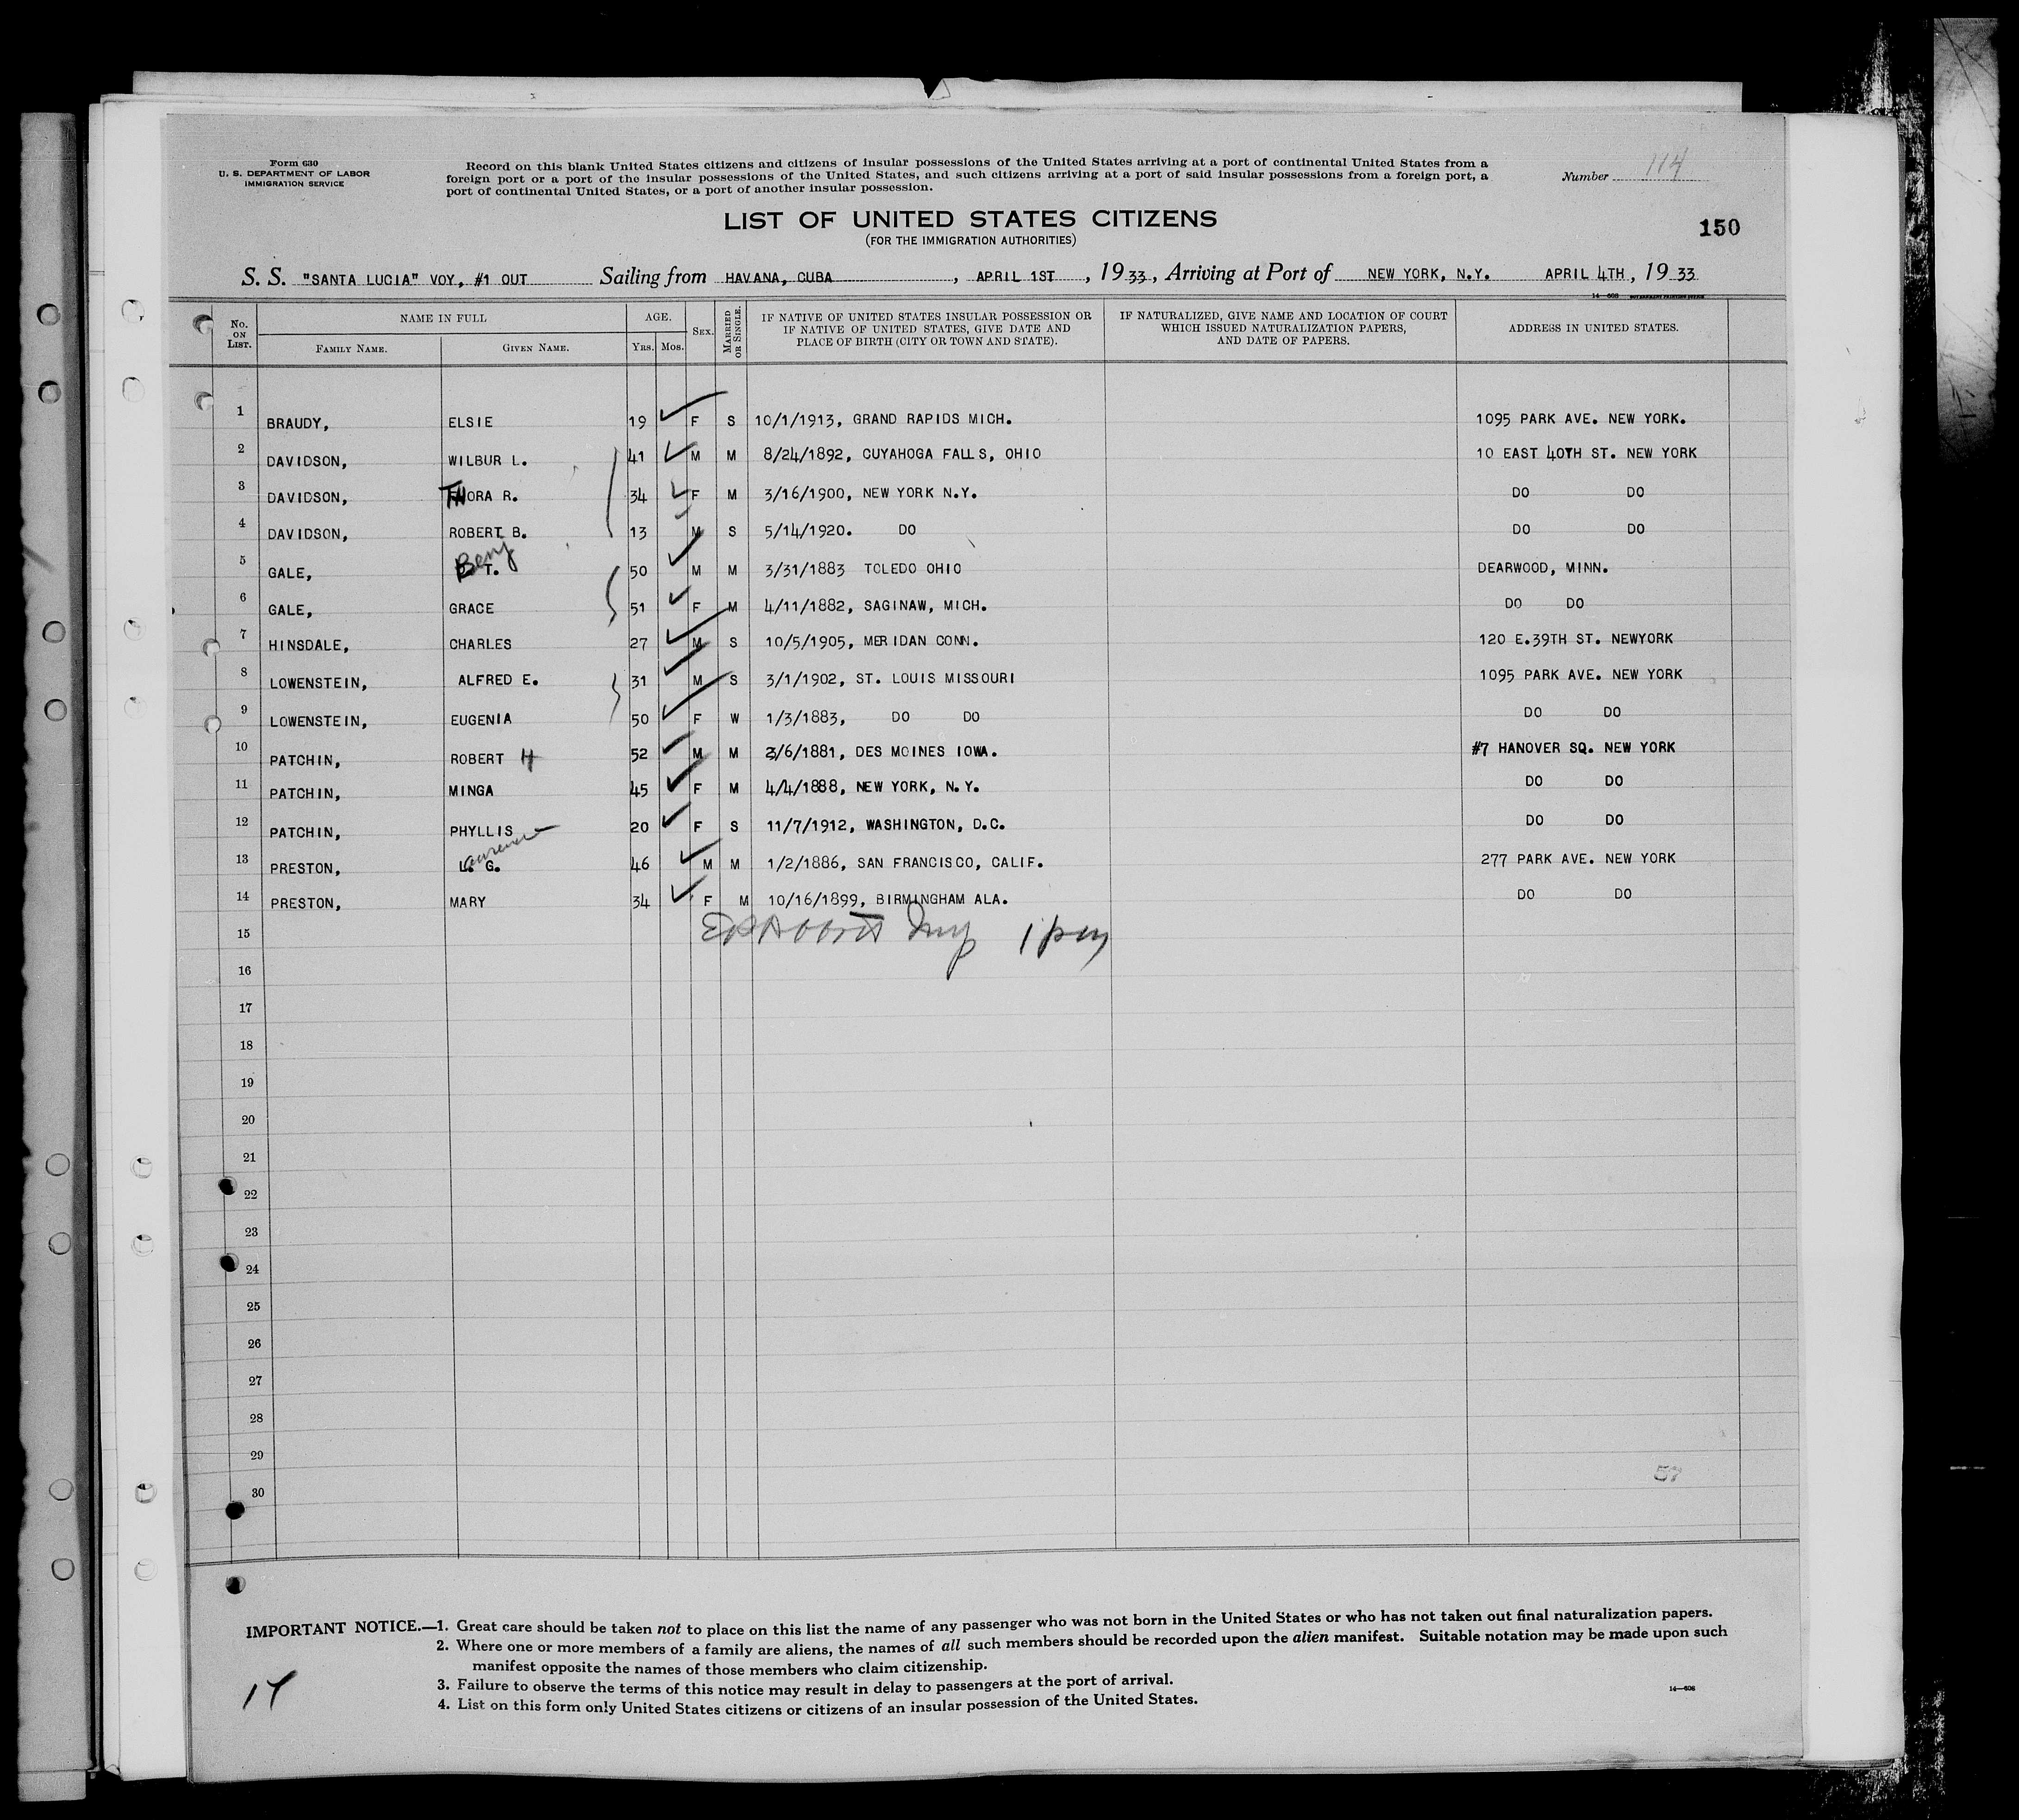 Form 630
U. S. DEPARTMENT OF LABOR
IMMIGRATION SERVICE
Record on this blank United States citizens and citizens of insular possessions of the United States arriving at a port of continental United States from a
foreign port or a port of the insular possessions of the United States, and such citizens arriving at a port of said insular possessions from a foreign port, a
port of continental United States, or a port of another insular possession.
Number 114
LIST OF UNITED STATES CITIZENS
(FOR THE IMMIGRATION AUTHORITIES)
150
S. S. "SANTA LUCIA" VOY, #1 OUT Sailing from HAVANA, CUBA, APRIL 1ST, 19 33, Arriving at Port of NEW YORK, N.Y. APRIL 4TH, 19 33
14—608 GOVERNMENT PRINTING OFFICE
No. ON LIST. NAME IN FULL FAMILY NAME. GIVEN NAME. AGE. YRS. MOS. SEX. MARRIED OR SINGLE. IF NATIVE OF UNITED STATES INSULAR POSSESSION OR IF NATIVE OF UNITED STATES, GIVE DATE AND PLACE OF BIRTH (CITY OR TOWN AND STATE). IF NATURALIZED, GIVE NAME AND LOCATION OF COURT WHICH ISSUED NATURALIZATION PAPERS, AND DATE OF PAPERS. ADDRESS IN UNITED STATES.
1 BRAUDY, ELSIE 19 F S 10/1/1913, GRAND RAPIDS MICH. 1095 PARK AVE. NEW YORK.
2 DAVIDSON, WILBUR L. 41 M M 8/24/1892, CUYAHOGA FALLS, OHIO 10 EAST 40TH ST. NEW YORK
3 DAVIDSON, THORA R. 34 F M 3/16/1900, NEW YORK N.Y. DO DO
4 DAVIDSON, ROBERT B. 13 M S 5/14/1920. DO DO DO
5 GALE, Benj T. 50 M M 3/31/1883 TOLEDO OHIO DEARWOOD, MINN.
6 GALE, GRACE 51 F M 4/11/1882, SAGINAW, MICH. DO DO
7 HINSDALE, CHARLES 27 M S 10/5/1905, MERIDAN CONN. 120 E.39TH ST. NEWYORK
8 LOWENSTEIN, ALFRED E. 31 M S 3/1/1902, ST. LOUIS MISSOURI 1095 PARK AVE. NEW YORK
9 LOWENSTEIN, EUGENIA 50 F W 1/3/1883, DO DO DO DO
10 PATCHIN, ROBERT H 52 M M 3/6/1881, DES MOINES IOWA. #7 HANOVER SQ. NEW YORK
11 PATCHIN, MINGA 45 F M 4/4/1888, NEW YORK, N.Y. DO DO
12 PATCHIN, PHYLLIS 20 F S 11/7/1912, WASHINGTON, D.C. DO DO
13 PRESTON, Lawrence L. G. 46 M M 1/2/1886, SAN FRANCISCO, CALIF. 277 PARK AVE. NEW YORK
14 PRESTON, MARY 34 F M 10/16/1899, BIRMINGHAM ALA. DO DO
15 Insp 1 pm
16
17
18
19
20
21
22
23
24
25
26
27
28
29
57
30
IMPORTANT NOTICE.—1. Great care should be taken not to place on this list the name of any passenger who was not born in the United States or who has not taken out final naturalization papers.
2. Where one or more members of a family are aliens, the names of all such members should be recorded upon the alien manifest. Suitable notation may be made upon such
manifest opposite the names of those members who claim citizenship.
3. Failure to observe the terms of this notice may result in delay to passengers at the port of arrival.
4. List on this form only United States citizens or citizens of an insular possession of the United States.
14
14—608